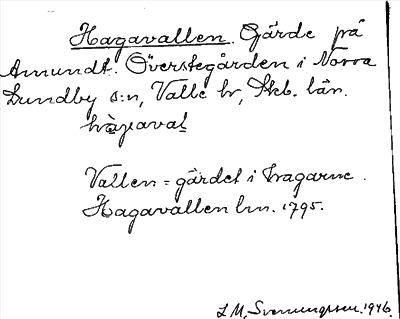 Hagavallen. Gärde på
Amundt. Överstegården i Norra
Lundby s:n, Valle hr, Skb. län.
hàgaval
Vallen = gärdet i hagarne.
Hagavallen lm. 1795.
1946.